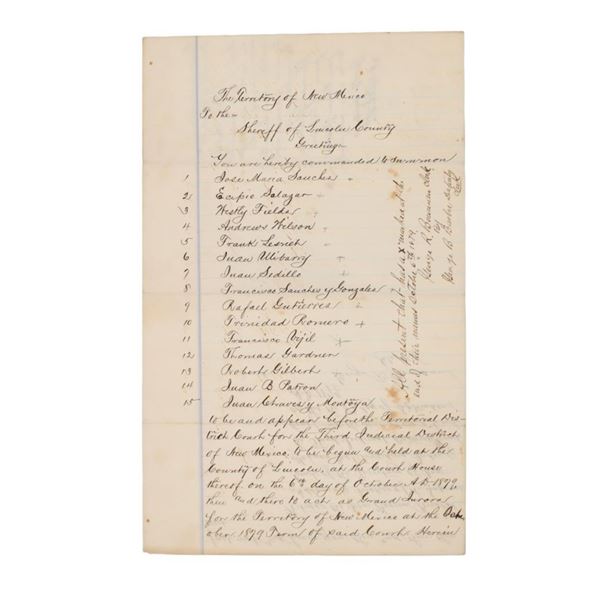 The Territory of New Mexico
To the
Sheriff of Lincoln County
Greeting
You are hereby commanded to summon
1 Jose Maria Sanches +
2 Ecipio Salazar +
3 Westly Fields +
4 Andrews Wilson +
5 Frank Lesnett +
6 Juan Ulibarry +
7 Juan Sedillo +
8 Francisco Sanches y Gonzales
9 Rafael Gutierres +
10 Trinidad Romero +
11 Francisco Vijil +
12 Thomas Gardner
13 Robert Gilbert +
14 Juan B Patron
15 Juan Chraves y Montoya
to be and appear before the Territorial Dis-
trict Court for the Third Judicial District
of New Mexico, to be begun and held at the
County of Lincoln, at the Court House
thereof on the 6th day of October A.D. 1879
then and there to act as Grand Jurors
for the Territory of New Mexico at the Octo
ober 1879 Term of said Court Herein
All present that has a X marked at the
end of their names October 6th 1879
George R. Bowman Clerk
By
George B Barber Deputy
Clerk